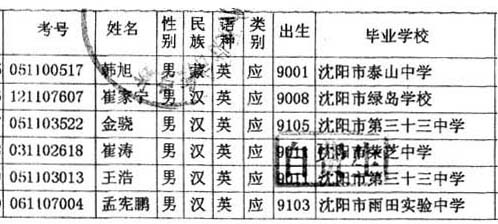 考号 姓名 性别 民族 语种 类别 出生 毕业学校
051100517 韩旭 男 英 应 9001 沈阳市泰山中学
121107607 崔家 男 汉 英 应 9008 沈阳市绿岛学校
051103522 金骁 男 汉 英 应 9105 沈阳市第三十三中学
031102618 崔涛 男 汉 英 应 沈阳市 芝中学
051103013 王浩 男 汉 英 应 沈阳市第三十三中学
061107004 孟宪鹏 男 汉 英 应 9103 沈阳市雨田实验中学